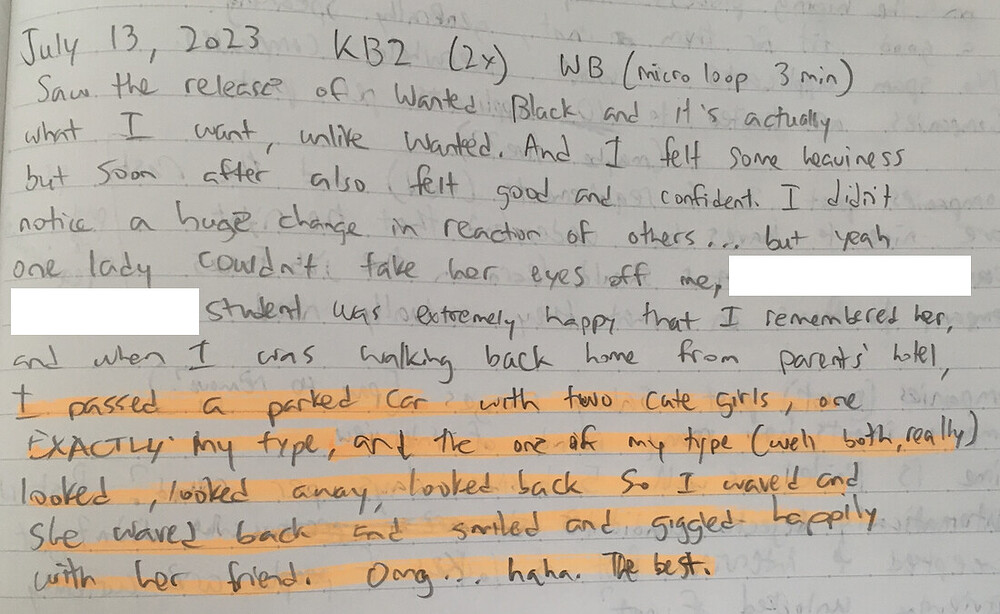 July 13, 2023 KB2 (2x) WB (micro loop 3 min)
Saw the release of Wanted Black and it's actually
what I want, unlike Wanted. And I felt some heaviness
but soon after also felt good and confident. I didn't
notice a huge change in reaction of others... but yeah
one lady couldn't take her eyes off me,
student was extremely happy that I remembered her,
and when I was walking back home from parents' hotel,
I passed a parked car with two cute girls, one
EXACTLY my type, and the one of my type (well both, really)
looked, looked away, looked back so I waved and
she waved back and smiled and giggled happily
with her friend. Omg... haha. The best.